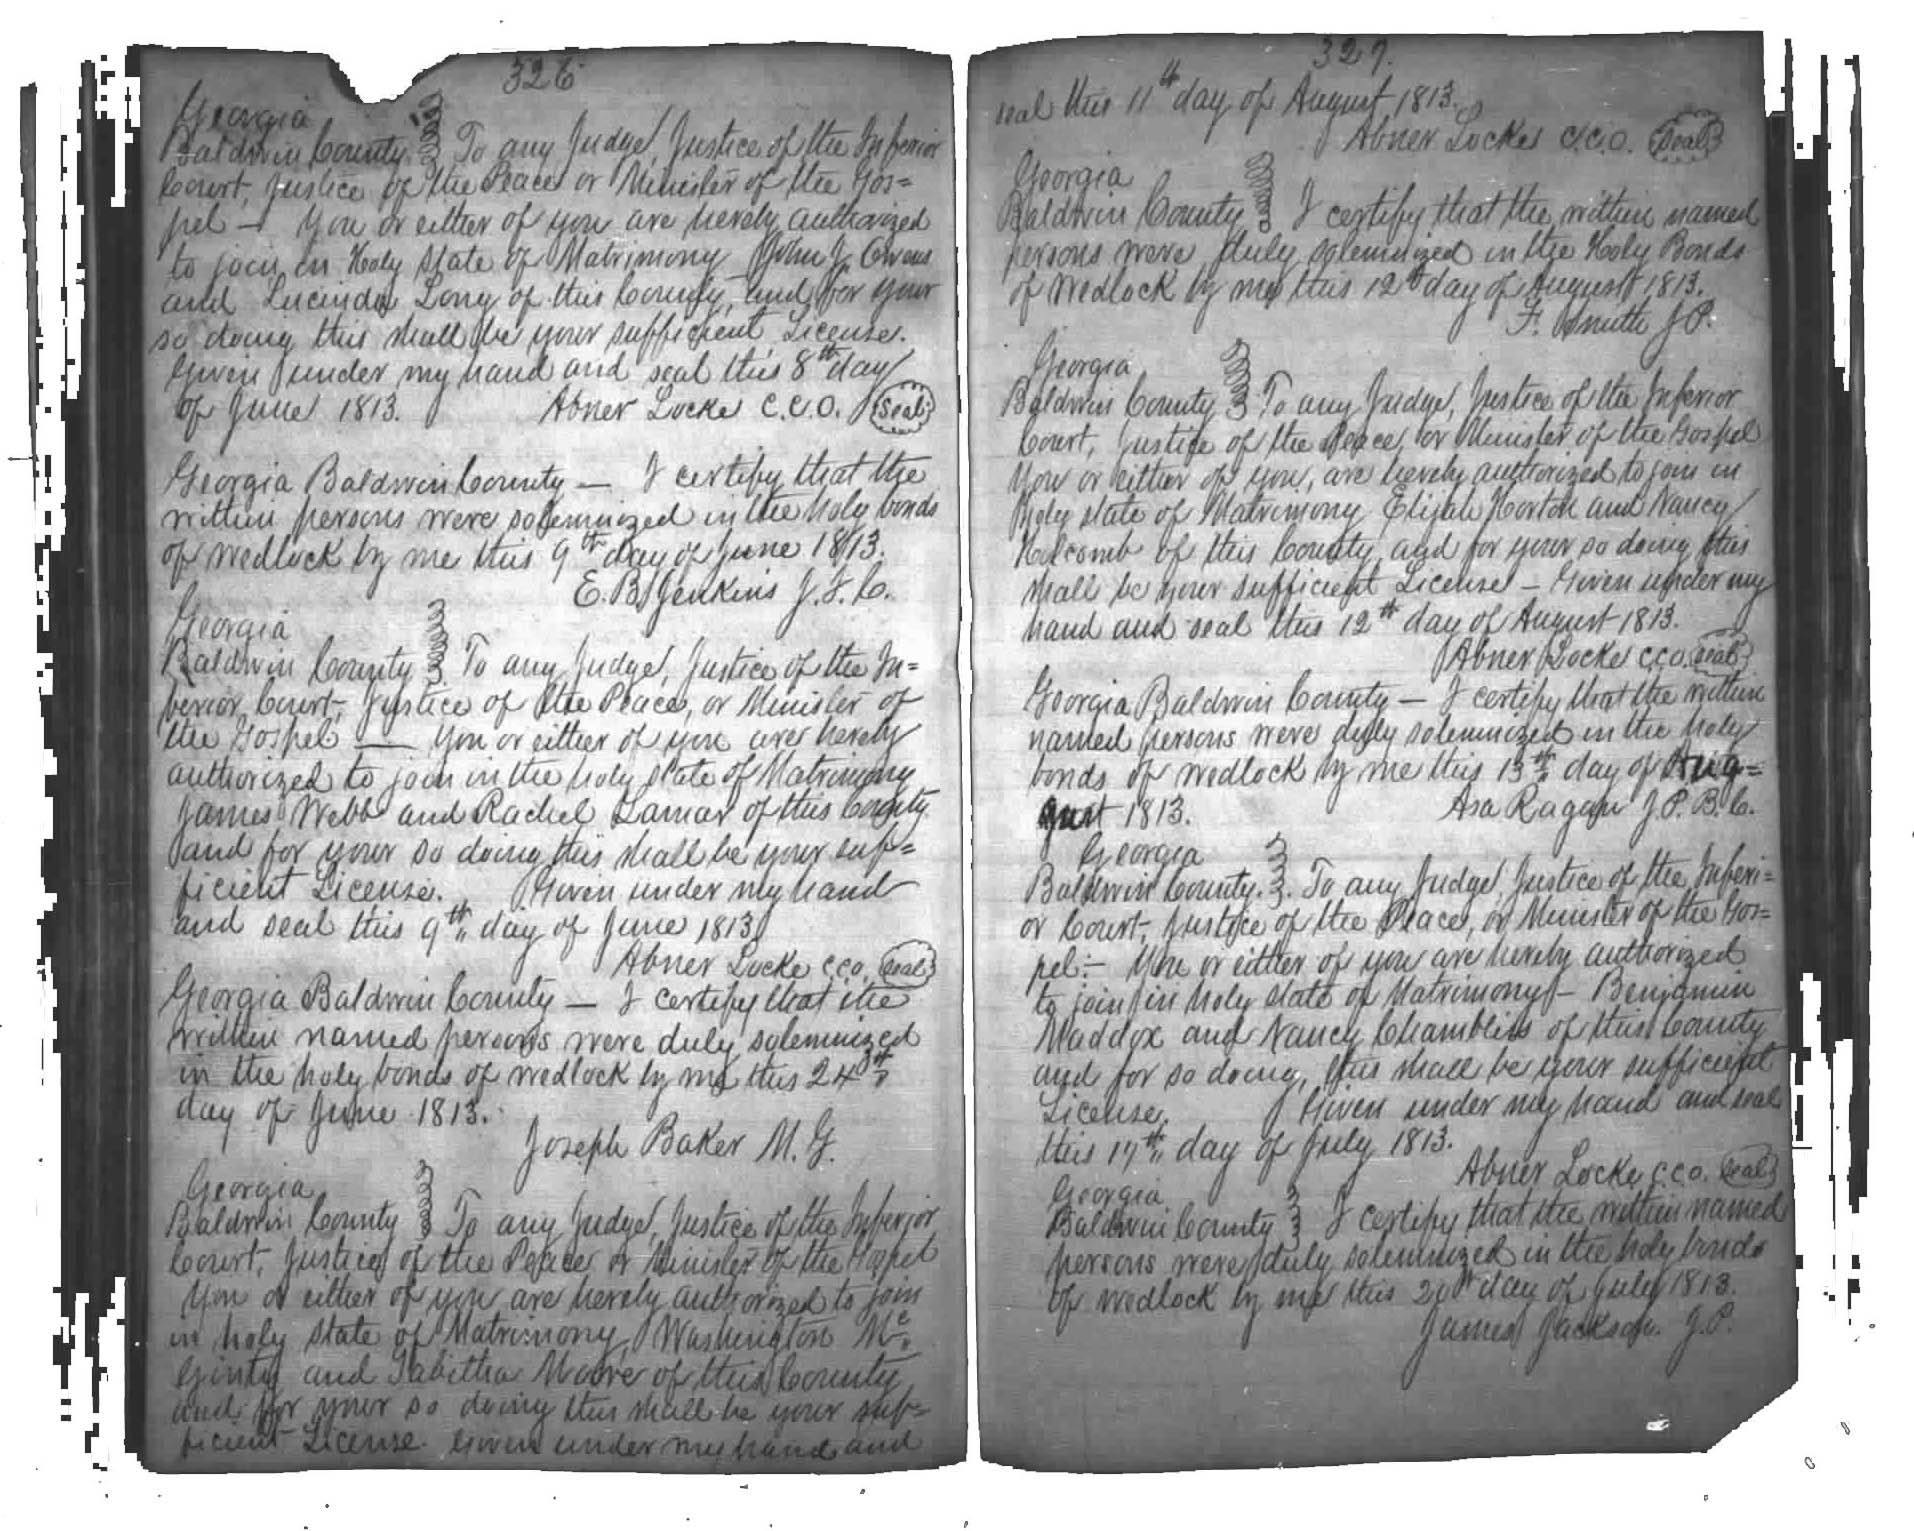 326
Georgia
Baldwin County. To any Judge, Justice of the Inferior
Court, Justice of the Peace or Minister of the Gos=
pel — You or either of you are hereby authorized
to join in Holy state of Matrimony John J. Owens
and Lucinda Long of this County, and for your
so doing this shall be your sufficient License.
Given under my hand and seal this 8th day
of June 1813. Abner Locke C.C.O. Seal
Georgia Baldwin County — I certify that the
within persons were solemnized in the holy bonds
of wedlock by me this 9th day of June 1813.
E. B. Jenkins J.I.C.
Georgia
Baldwin County. To any Judge, Justice of the In=
ferior Court, Justice of the Peace, or Minister of
the Gospel — You or either of you are hereby
authorized to join in the holy state of Matrimony
James Webb and Rachel Lamar of this County
and for your so doing this shall be your suf=
ficient License. Given under my hand
and seal this 9th day of June 1813
Abner Locke C.C.O. Seal
Georgia Baldwin County — I certify that the
within named persons were duly solemnized
in the holy bonds of wedlock by me this 24th
day of June 1813.
Joseph Baker M.G.
Georgia
Baldwin County To any Judge, Justice of the Inferior
Court, Justice of the Peace or Minister of the Gospel
You or either of you are hereby authorized to join
in holy state of Matrimony, Washington Mc
Ginty and Tabitha Moore of this County
and for your so doing this shall be your suf=
ficient License. Given under my hand and
327.
seal this 11th day of August 1813.
Abner Locke C.C.O. Seal
Georgia
Baldwin County I certify that the within named
persons were duly solemnized in the Holy Bonds
of Wedlock by me this 12th day of August 1813.
F. Smith J.P.
Georgia
Baldwin County To any Judge, Justice of the Inferior
Court, Justice of the Peace, or Minister of the Gospel
You or either of you, are hereby authorized to join in
holy state of Matrimony Elijah Horton and Nancy
Holcomb of this County, and for your so doing this
shall be your sufficient License — Given under my
hand and seal this 12th day of August 1813.
Abner Locke C.C.O. Seal
Georgia Baldwin County — I certify that the within
named persons were duly solemnized in the holy
bonds of wedlock by me this 13th day of Aug=
gust 1813. Asa Ragan J.P.B.C.
Georgia
Baldwin County. To any Judge, Justice of the Inferi=
or Court, Justice of the Peace, or Minister of the Gos=
pel:— You or either of you are hereby authorized
to join in holy state of Matrimony — Benjamin
Maddox and Nancy Chambliss of this County
and for so doing, this shall be your sufficient
License. Given under my hand and seal
this 17th day of July 1813.
Abner Locke C.C.O. Seal
Georgia
Baldwin County I certify that the within named
persons were duly solemnized in the holy bonds
of wedlock by me this 20th day of July 1813.
James Jackson. J.P.